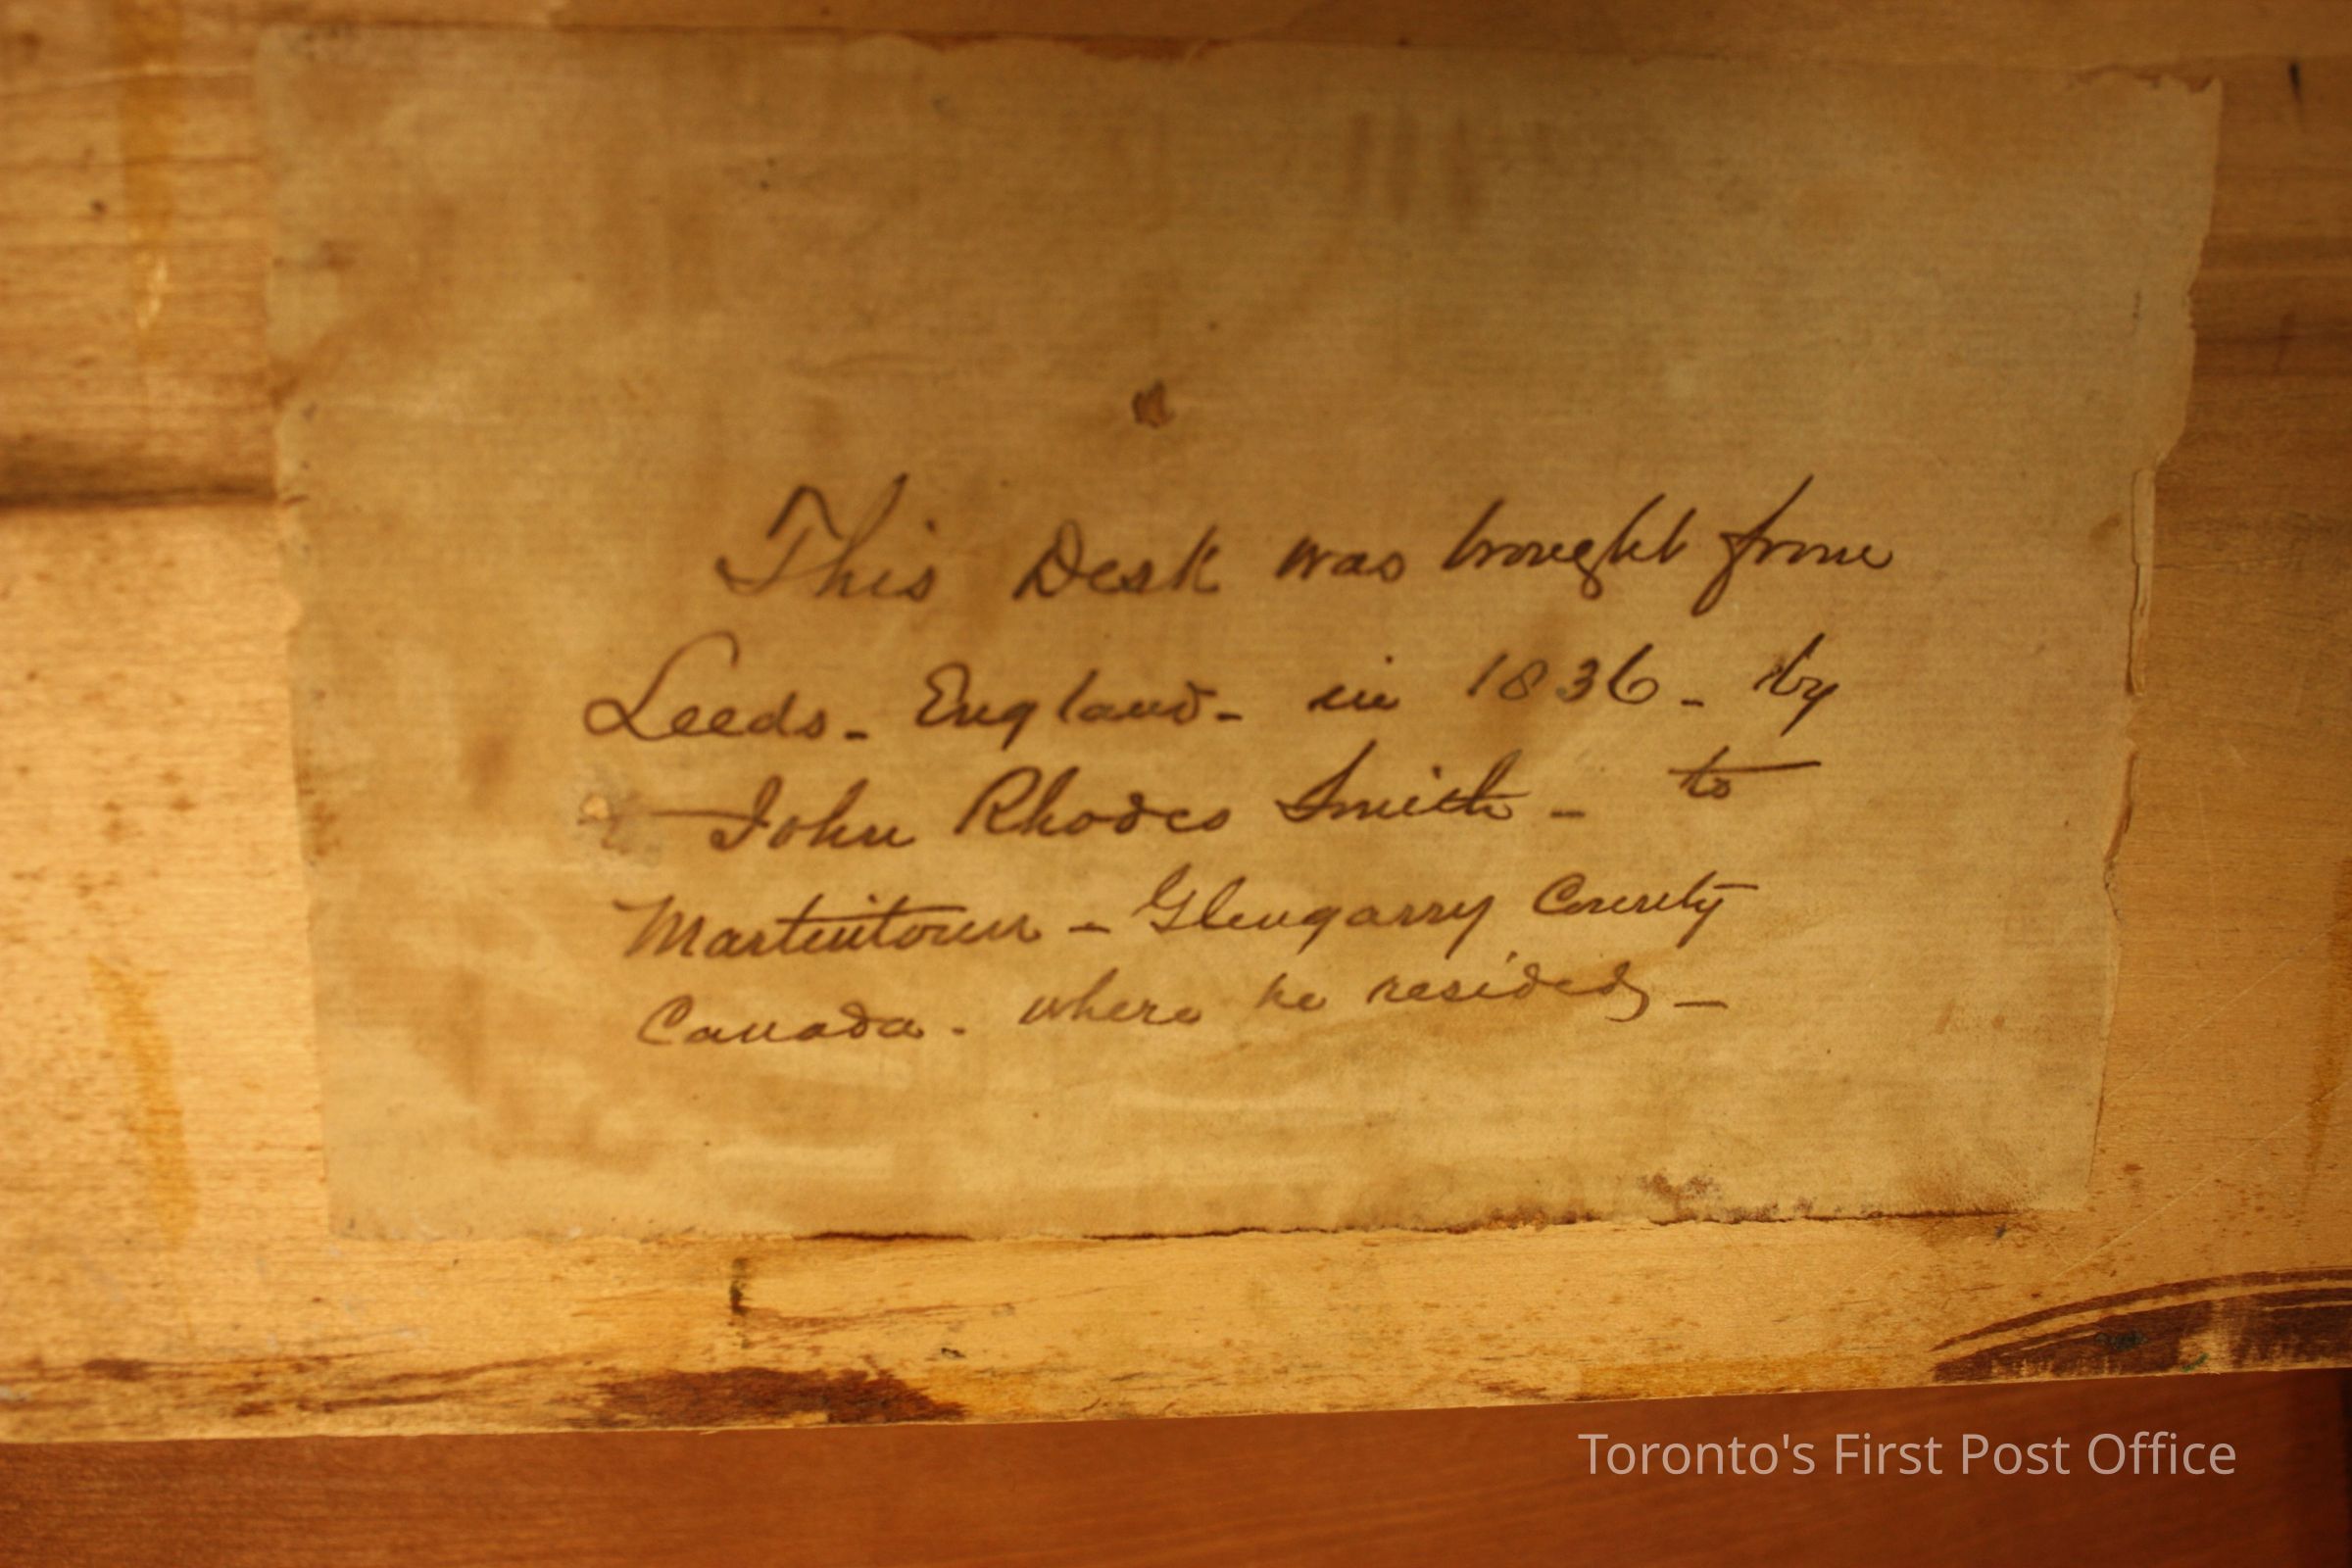 This Desk was brought from
Leeds - England - in 1836 - by
John Rhodes Smith - to
Martintown - Glengarry County
Canada - where he resided -
Toronto's First Post Office